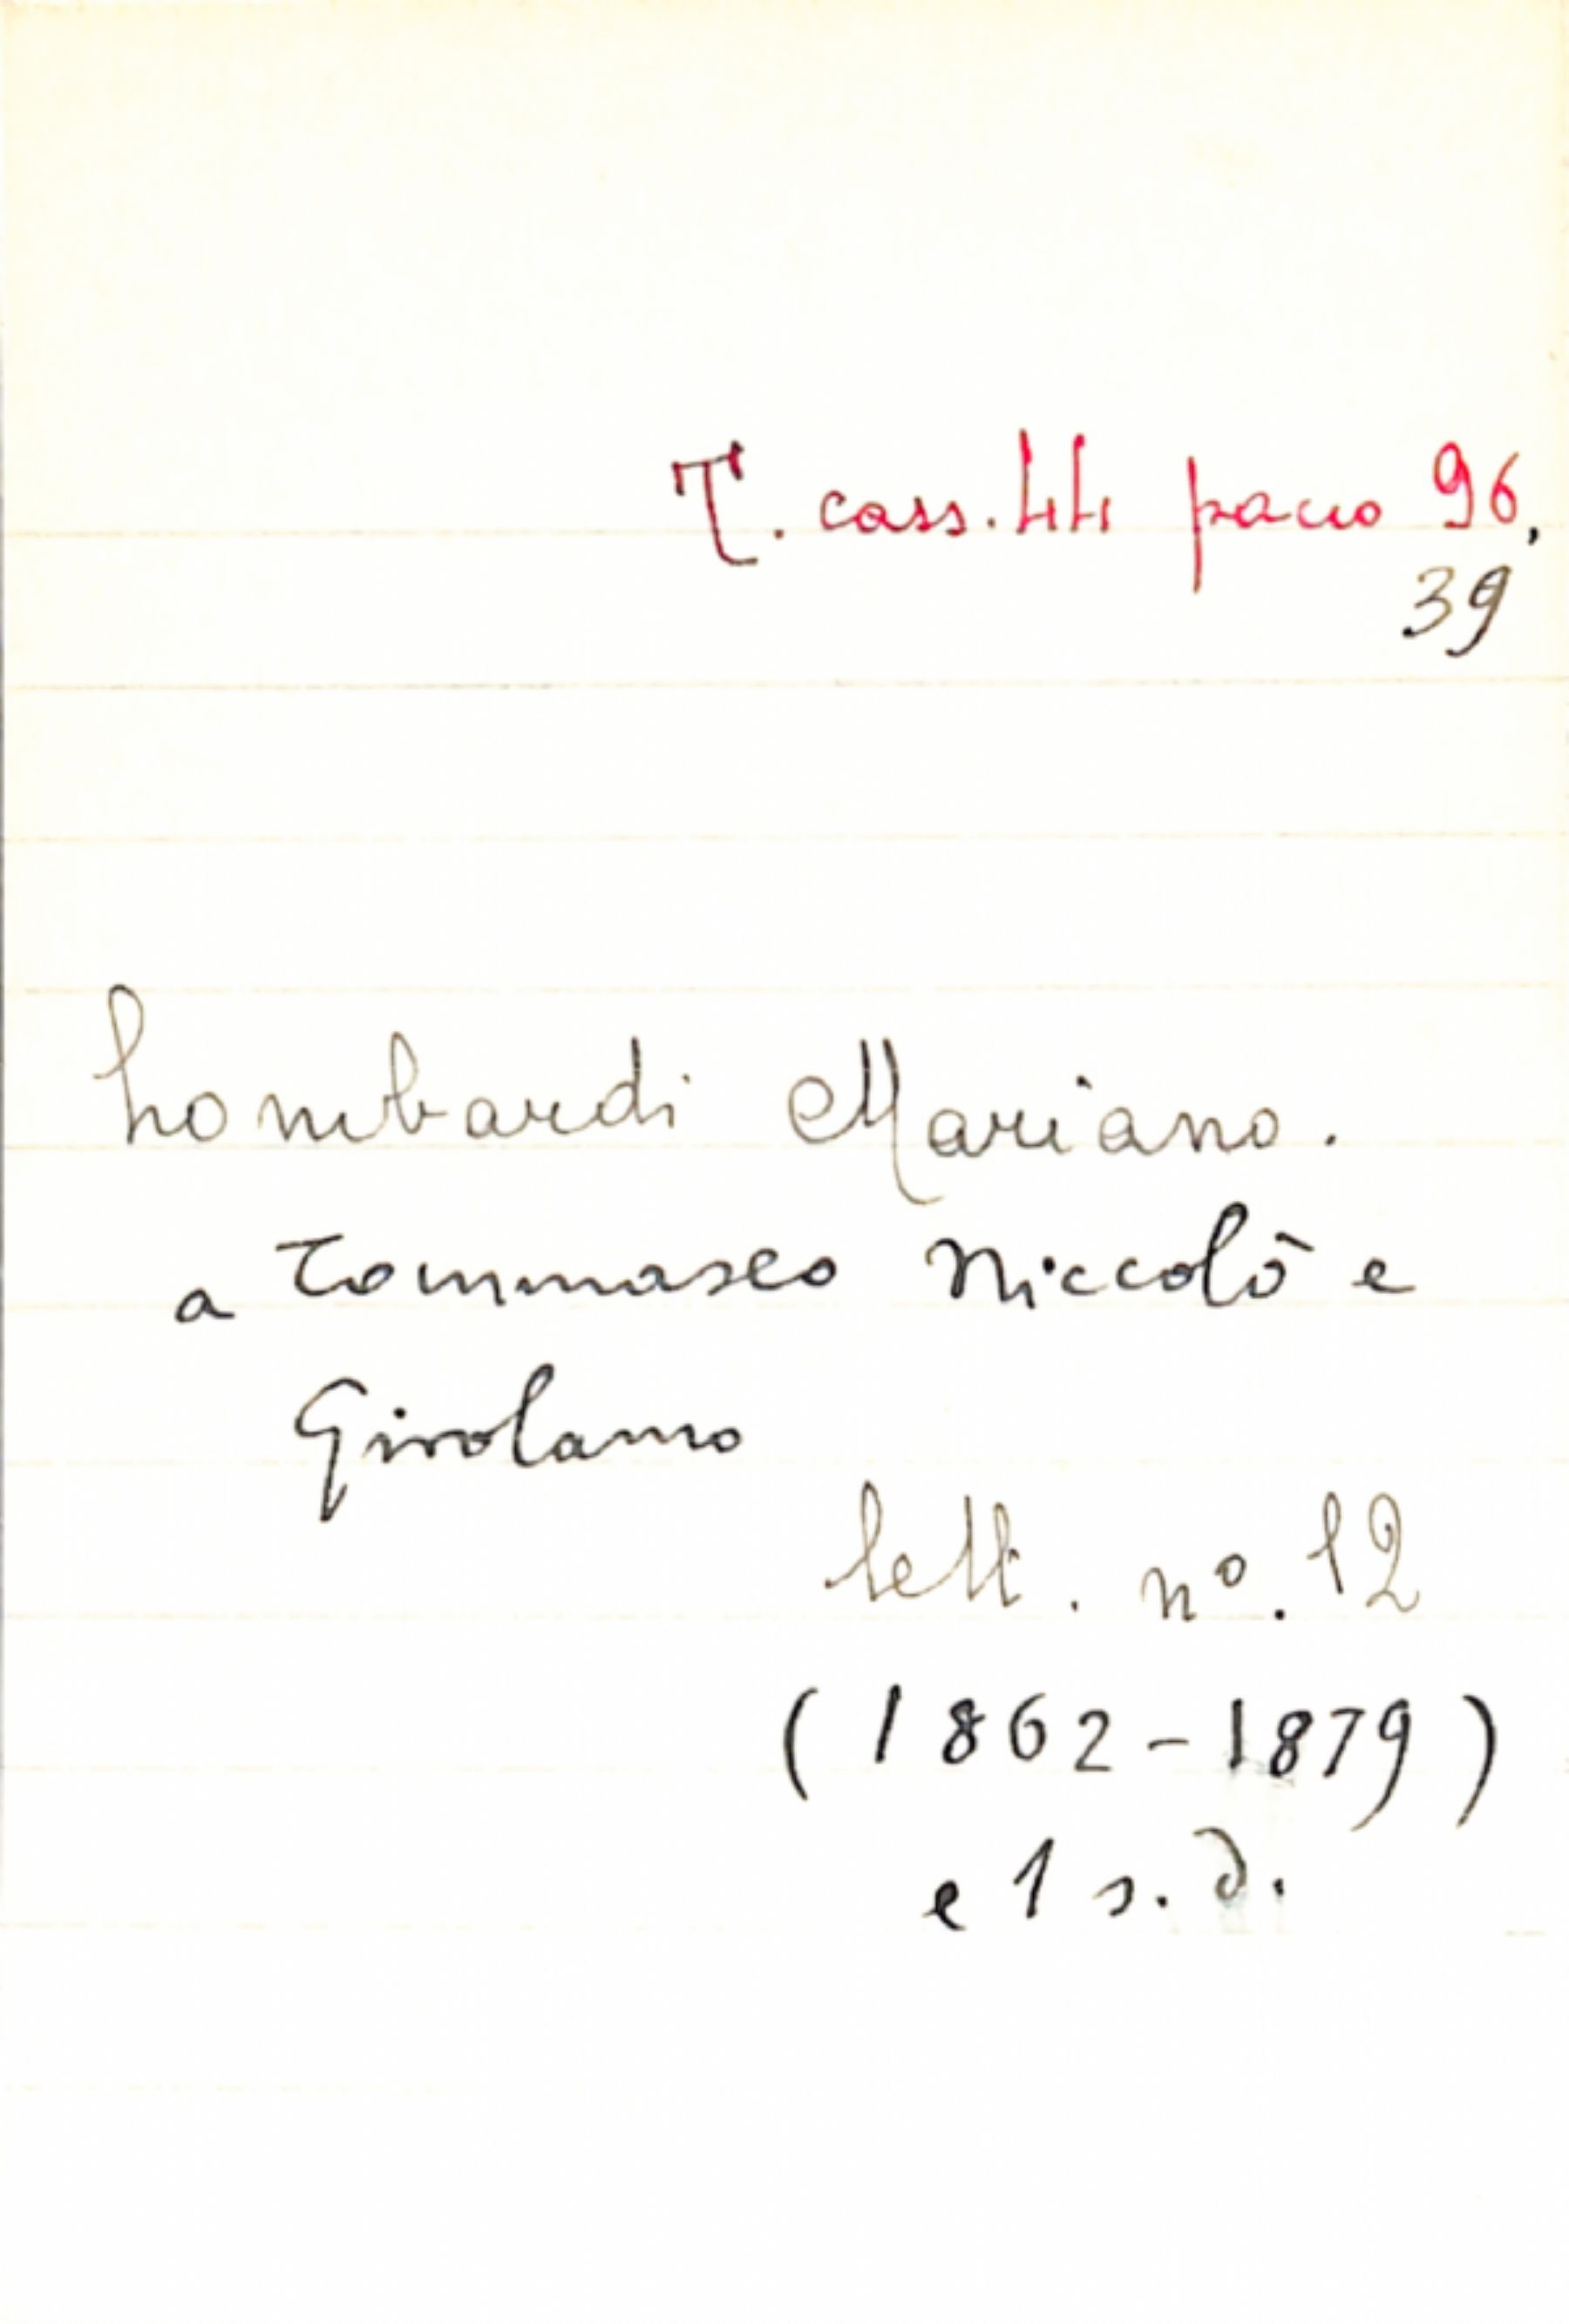 T. cass. 44 pacco 96,
39
Lombardi Mariano.
a Tommaseo Niccolò e
Girolamo
lett. nº. 12
(1862-1879)
e 1 s. d.